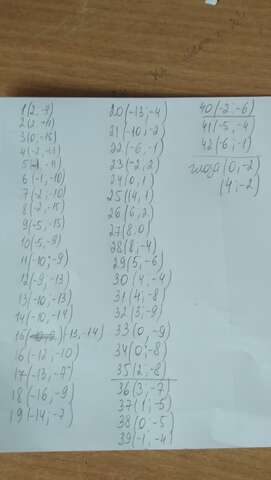 1(2,-9)
2(2,-11)
3(0,-15)
4(-2,-13)
5(-1,-11)
6(-1,-10)
7(-2,-10)
8(-2,-15)
9(-5,-15)
10(-5,-9)
11(-10,-9)
12(-9,-13)
13(-10,-13)
14(-10,-14)
15(-13,-14)
16(-12,-10)
17(-13,-7)
18(-16,-9)
19(-14,-7)
20(-13,-4)
21(-10,-2)
22(-6,-1)
23(-2,2)
24(0,1)
25(14,1)
26(6,2)
27(8,0)
28(8,-4)
29(5,-6)
30(4,-4)
31(4,-8)
32(3,-9)
33(0,-9)
34(0,-8)
35(2,-8)
36(3,-7)
37(1,-5)
38(0,-5)
39(-1,-4)
40(-2,-6)
41(-5,-4)
42(-6,-1)
глаза(0,-2)
(4,-2)